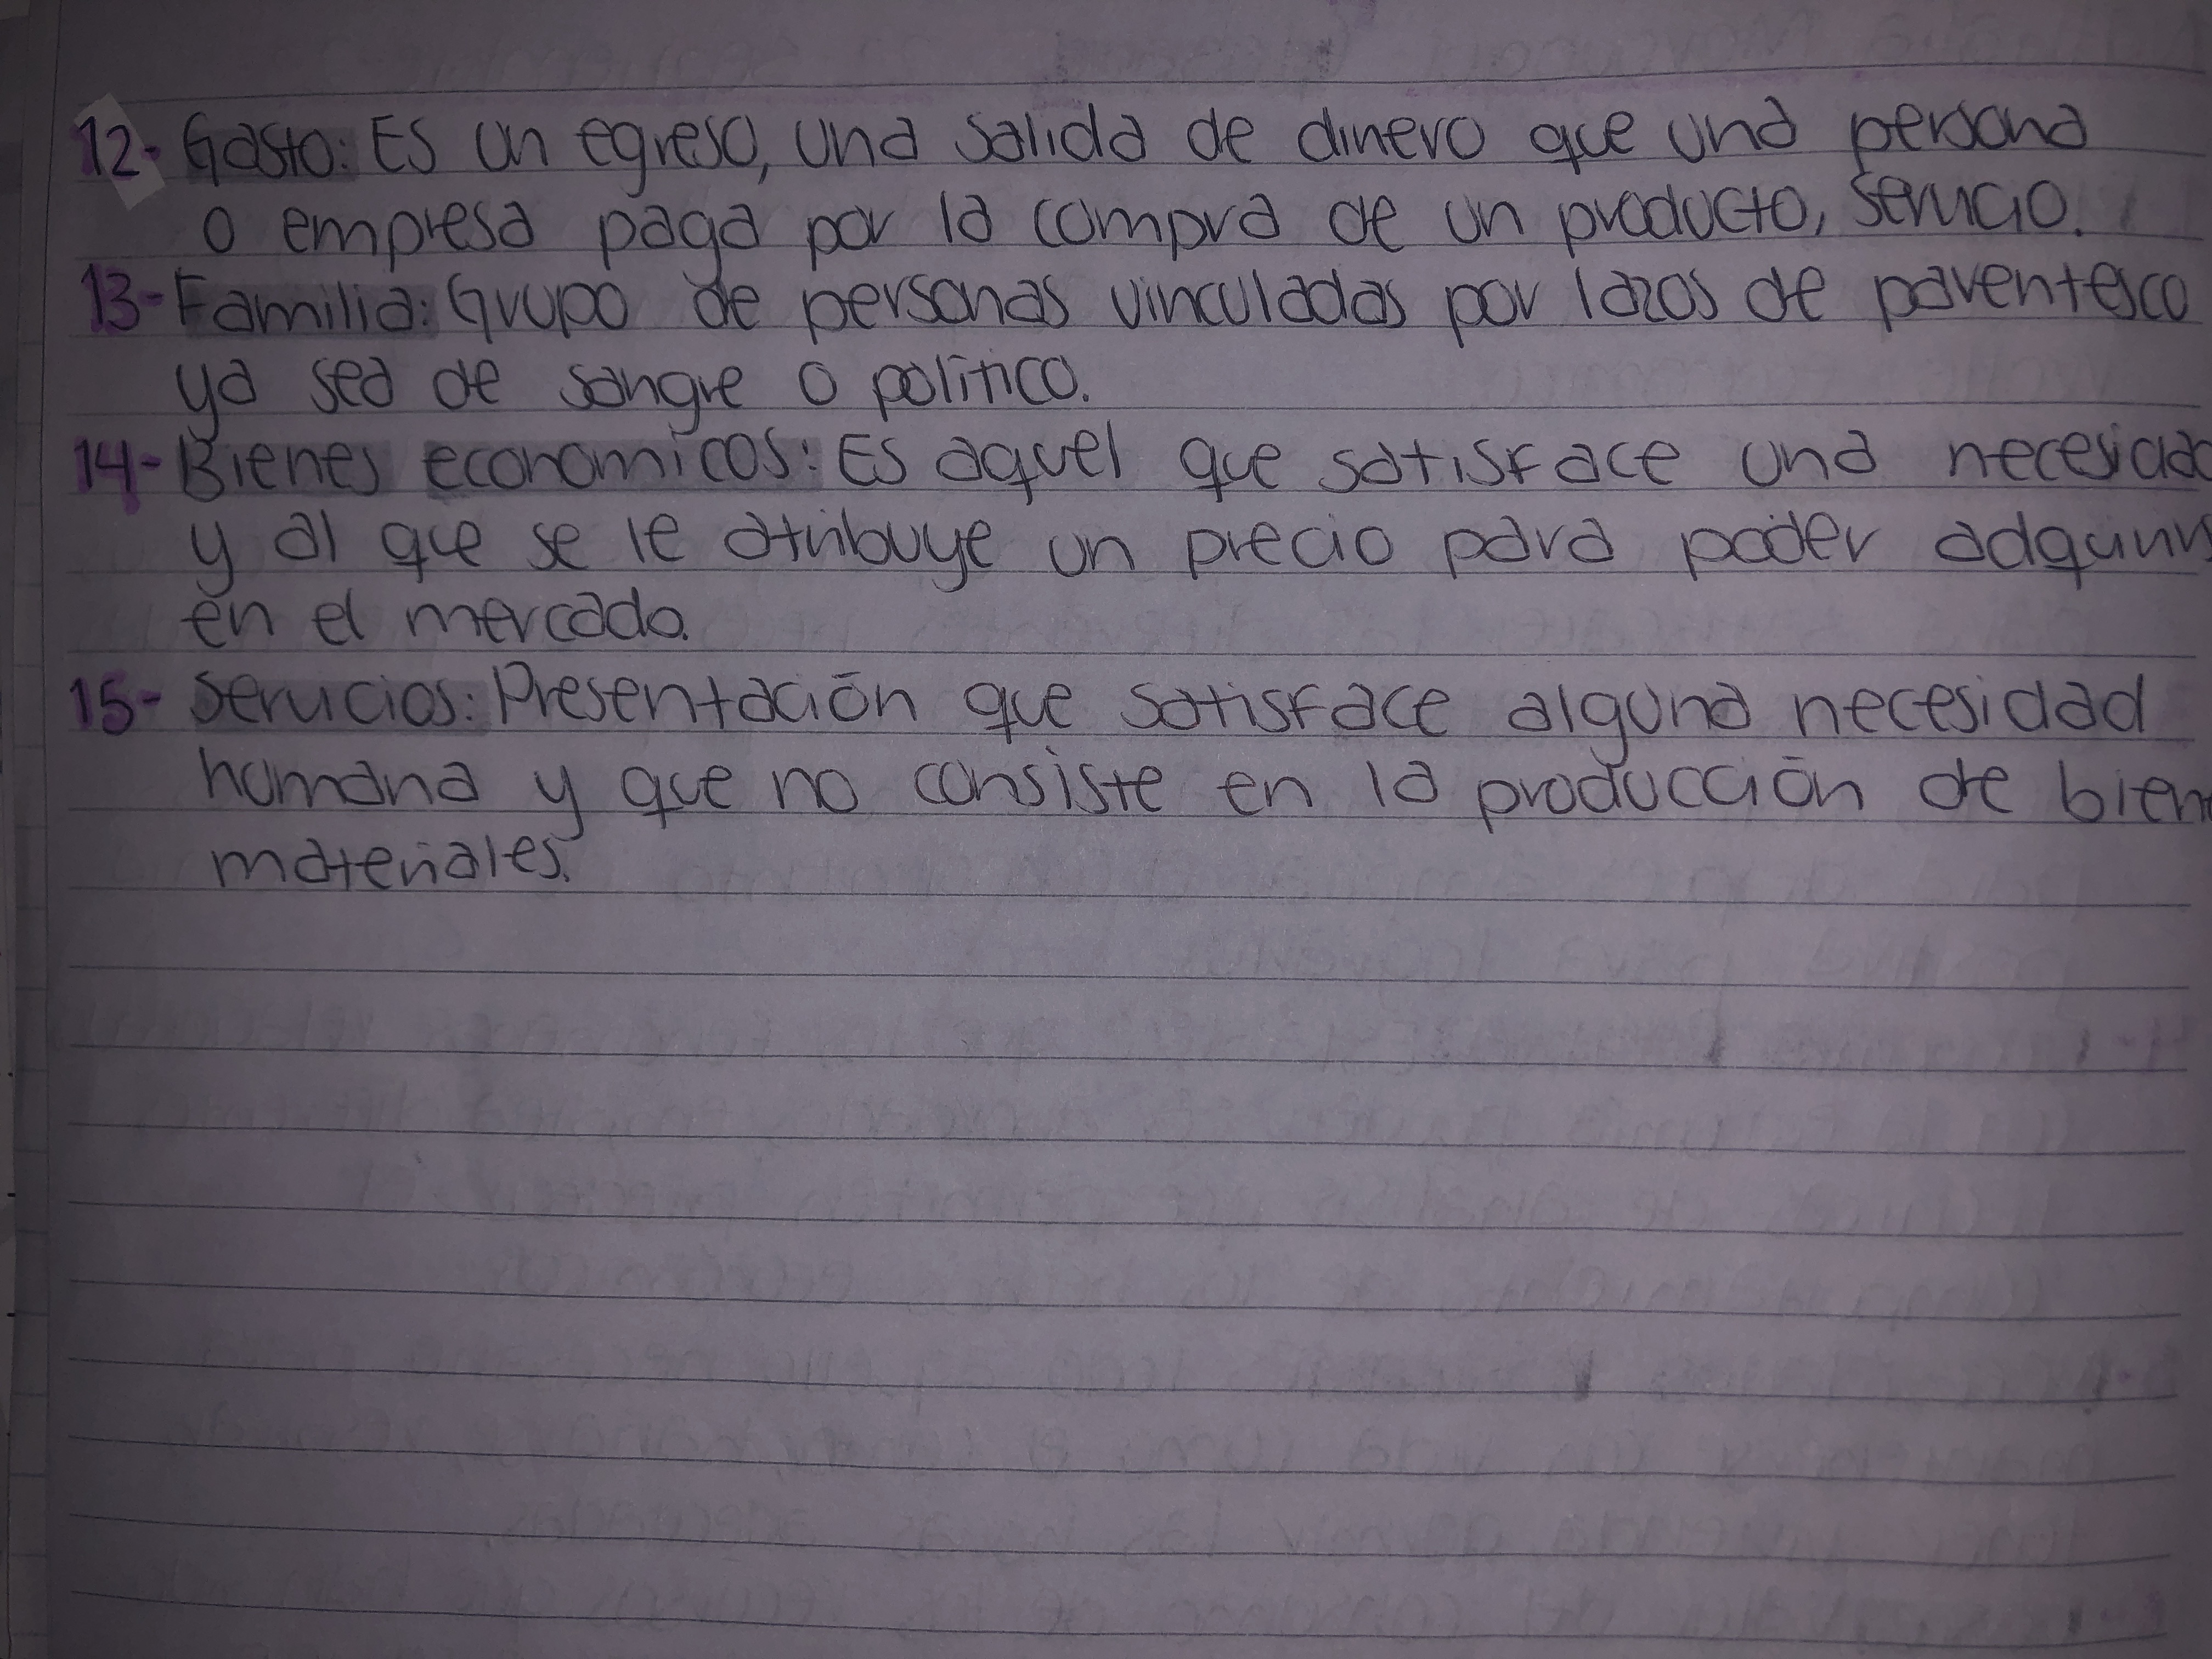 12- Gasto: Es un egreso, una salida de dinero que una persona
o empresa paga por la compra de un producto, servicio.
13- Familia: Grupo de personas vinculadas por lazos de parentesco
ya sea de sangre o político.
14- Bienes economicos: Es aquel que satisface una necesidad
y al que se le atribuye un precio para poder adquirir
en el mercado.
15- Servicios: Presentación que satisface alguna necesidad
humana y que no consiste en la producción de bien
materiales.